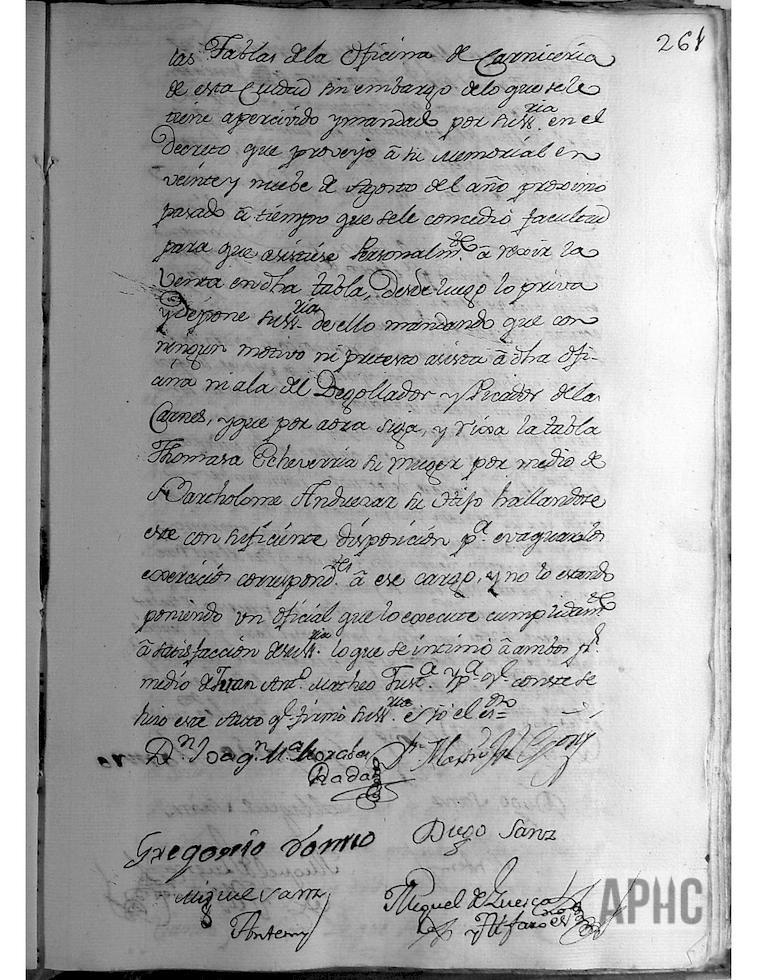 261
las Tablas dela Oficina de Carniceria
de esta Ciudad sin embargo delo que sele
tiene apercivido y mandado por su ssria. en el
Decreto que proveyo â su Memorial en
veinte y nuebe de Agosto del año proximo
pasado â tiempo que sele concedió facultad
para que asistiese Personalmte. â rexir la
Venta en dha tabla, Desde luego lo priva
y depone su ssria. de ello mandando que con
ningun motivo ni pretesto asista â dha Ofi-
cina ni ala del Degollador y Picador dela
Carnes, y que por aora siga, y rixa la tabla
Thomasa Echeverria su muger por medio de
Bartholome Anduezar su Hijo hallandose
este con suficiente disposicion pa. evaquar los
exercicios correspondtes. â ese cargo, y no lo estando
poniendo un oficial que lo execute cumplidamte
â satisfaccion de su ssria. lo que se intimó â ambos pr.
medio de Juan Anto. Matheo y pa. qe. conste se
hizo este Auto qe. firmó su ssria. e Yo el esno
Dn. Joaqn. Ma. Morales
Rada
Gregorio
Diego Sanz
Miguel Sanz
Antemi
Miguel de Huesca
y Alfaro
APHC